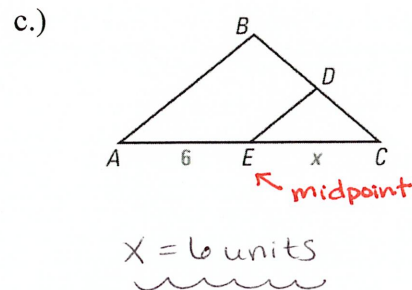 c.)
B
D
A 6 E x C
midpoint
x = 6 units